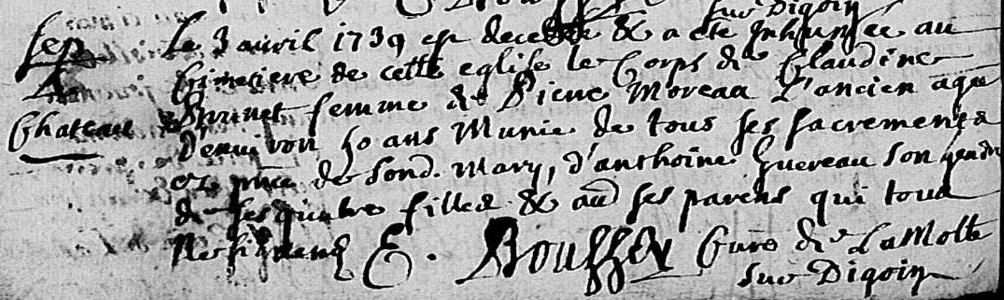 sur Digoin
Sep
Chateau
Le 3 avril 1739 est decedée & a esté Inhumée au
Cimetiere de cette eglise le Corps de Claudine
femme de Pierre Moreau L'ancien agé
D'environ 50 ans Munie de tous ses sacrements
en pnce de son d. Mary, d'anthoine Guereau son gendre
de ses quatre filles & aut ses parens qui tous
E. Bouffey Curé de La Motte
sur Digoin